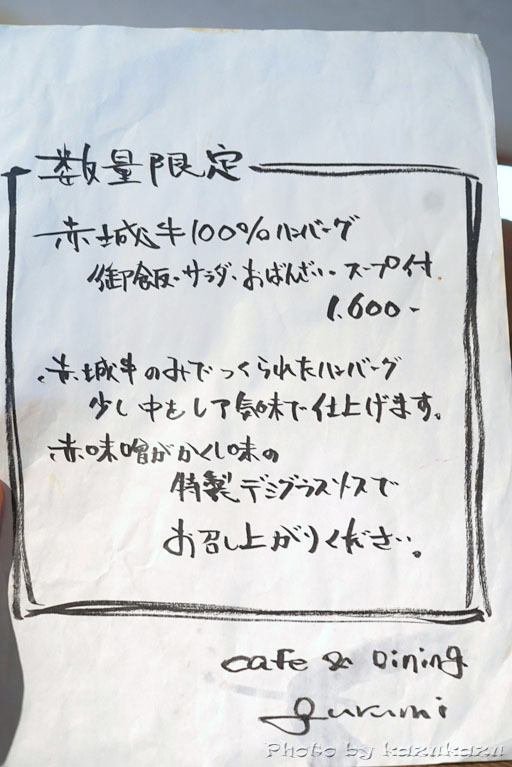 数量限定
赤城牛100%ハンバーグ
御飯・サラダ・おばんざい・スープ付
1,600-
赤城牛のみでつくられたハンバーグ
少し中をレア気味で仕上げます。
赤味噌がかくし味の
特製デミグラスソースで
お召し上がりください。
cafe & Dining
gurumi
Photo by kazukazu